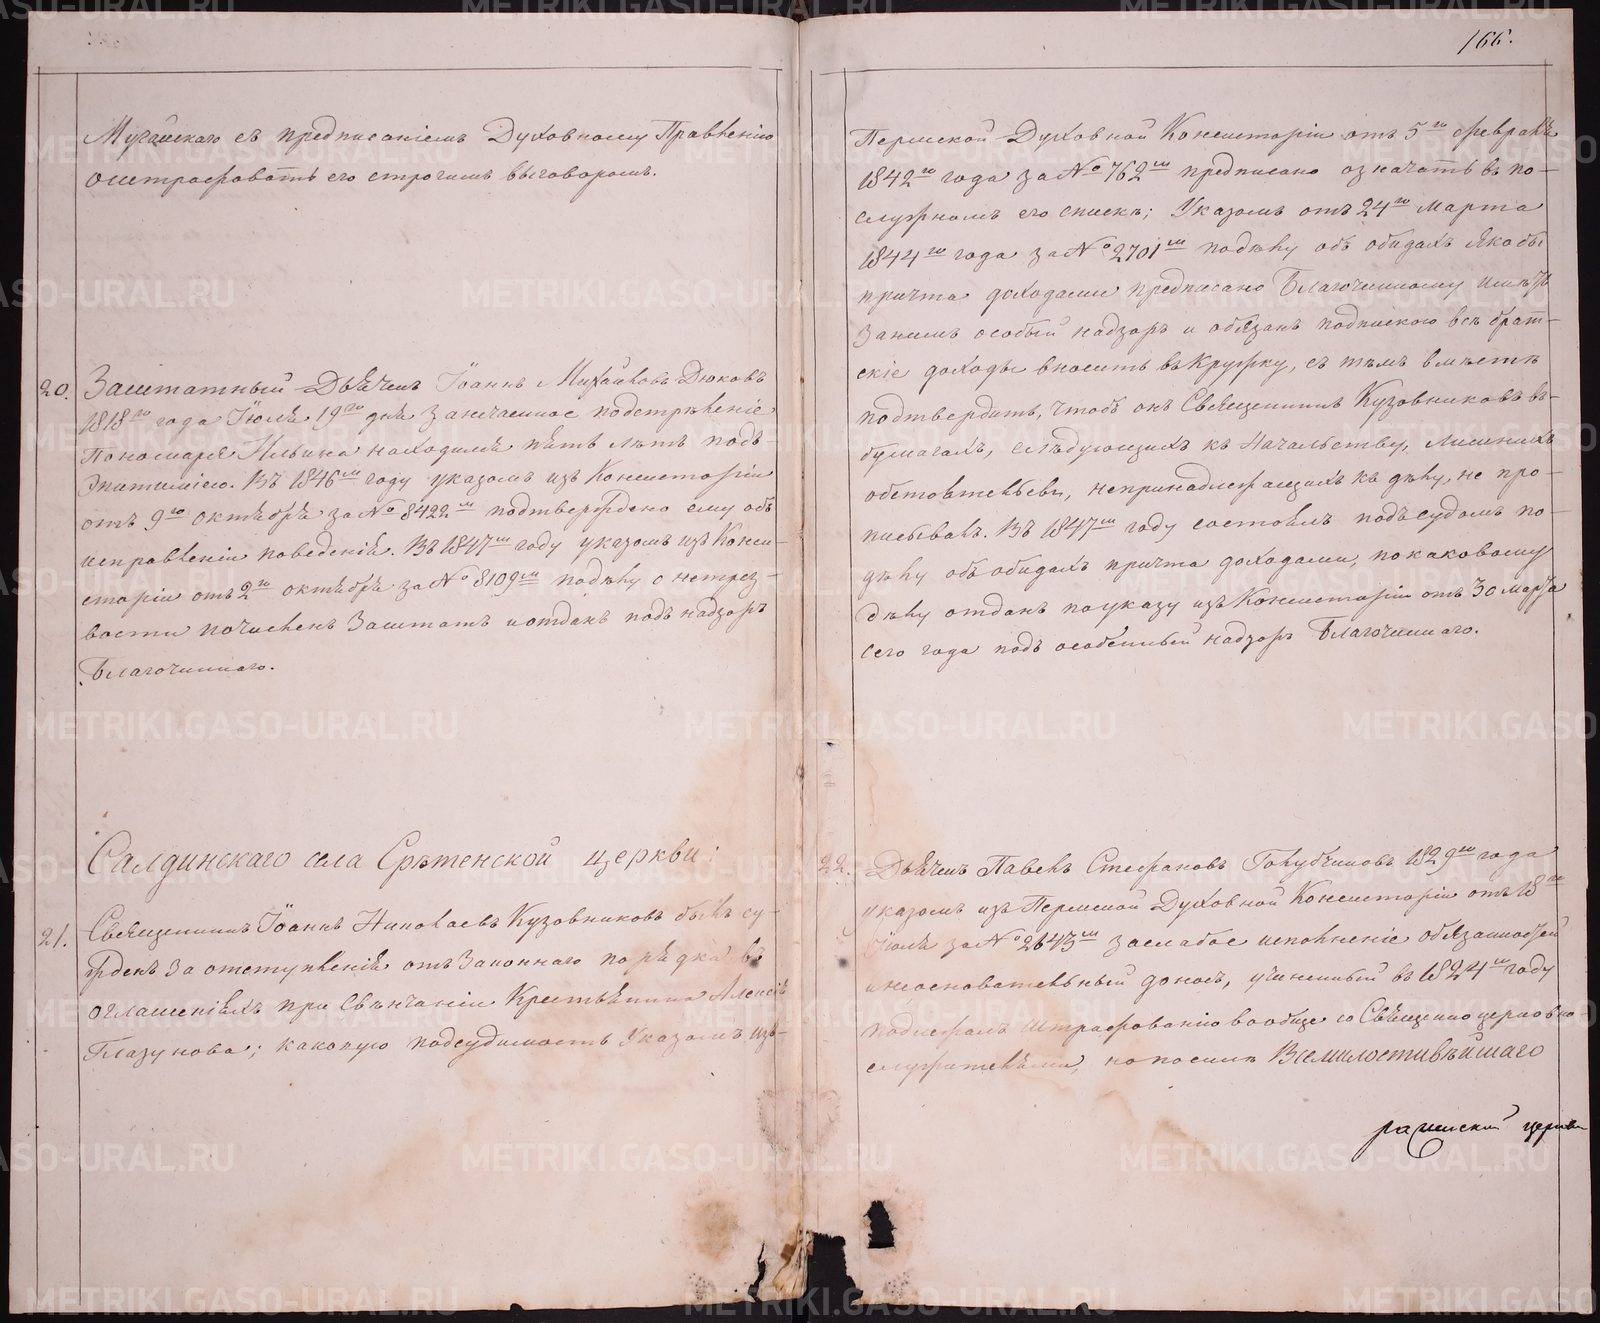 166.
Мугайскаго съ предписаніемъ Духовному Правленію
оштрафовать его строгимъ выговоромъ.
20. Заштатный Дьячекъ Іоаннъ Михайловъ Дюковъ
1818го года Іюля 19го дня за нечаянное подстрѣленіе
Пономаря Ильина находился пять лѣтъ подъ
Эпитиміею. Въ 1846м году указомъ изъ Консисторіи
отъ 9го октября за № 8422м подтверждено ему объ
исправленіи поведенія. Въ 1847м году указомъ изъ Конси-
сторіи отъ 2го октября за № 8109м по дѣлу о нетрез-
вости почисленъ Заштатъ и отданъ подъ надзоръ
Благочиннаго.
Салдинскаго села Срѣтенской церкви:
21. Священникъ Іоаннъ Николаевъ Кузовниковъ былъ су-
жденъ за отступленія отъ Законнаго порядка въ
оглашеніяхъ при Свѣнчаніи Крестьянина Алексія
Глазунова; каковую подсудимость Указомъ изъ
Пермской Духовной Консисторіи отъ 5го февраля
1842го года за № 762м предписано означать въ по-
служномъ его спискѣ; Указомъ отъ 24го Марта
1844го года за № 2701м по дѣлу объ обидахъ якобы
причта доходами предписано Благочинному имѣть
за нимъ особый надзоръ и обязанъ подпискою всѣ брат-
скіе доходы вносить въ Кружку, съ тѣмъ вмѣстѣ
подтвердить, чтобъ онъ Священникъ Кузовниковъ въ
бумагахъ, слѣдующихъ къ Начальству, лишнихъ
обстоятельствъ, непринадлежащихъ къ дѣлу, не про-
писывалъ. Въ 1847м году состоялъ подъ судомъ по
дѣлу объ обидахъ причта доходами, по каковому
дѣлу отданъ по указу изъ Консисторіи отъ 30 марта
сего года подъ особенный надзоръ Благочиннаго.
22. Дьячекъ Павелъ Стефановъ Голубчиковъ 1829м года
указомъ изъ Пермской Духовной Консисторіи отъ 18го
Іюля за № 2643м за слабое исполненіе обязанностей
и неосновательный доносъ, учиненный въ 1824м году
подлежалъ штрафованію вообще со Священноцерковно-
служителями, но по силѣ Всемилостивѣйшаго
церкви